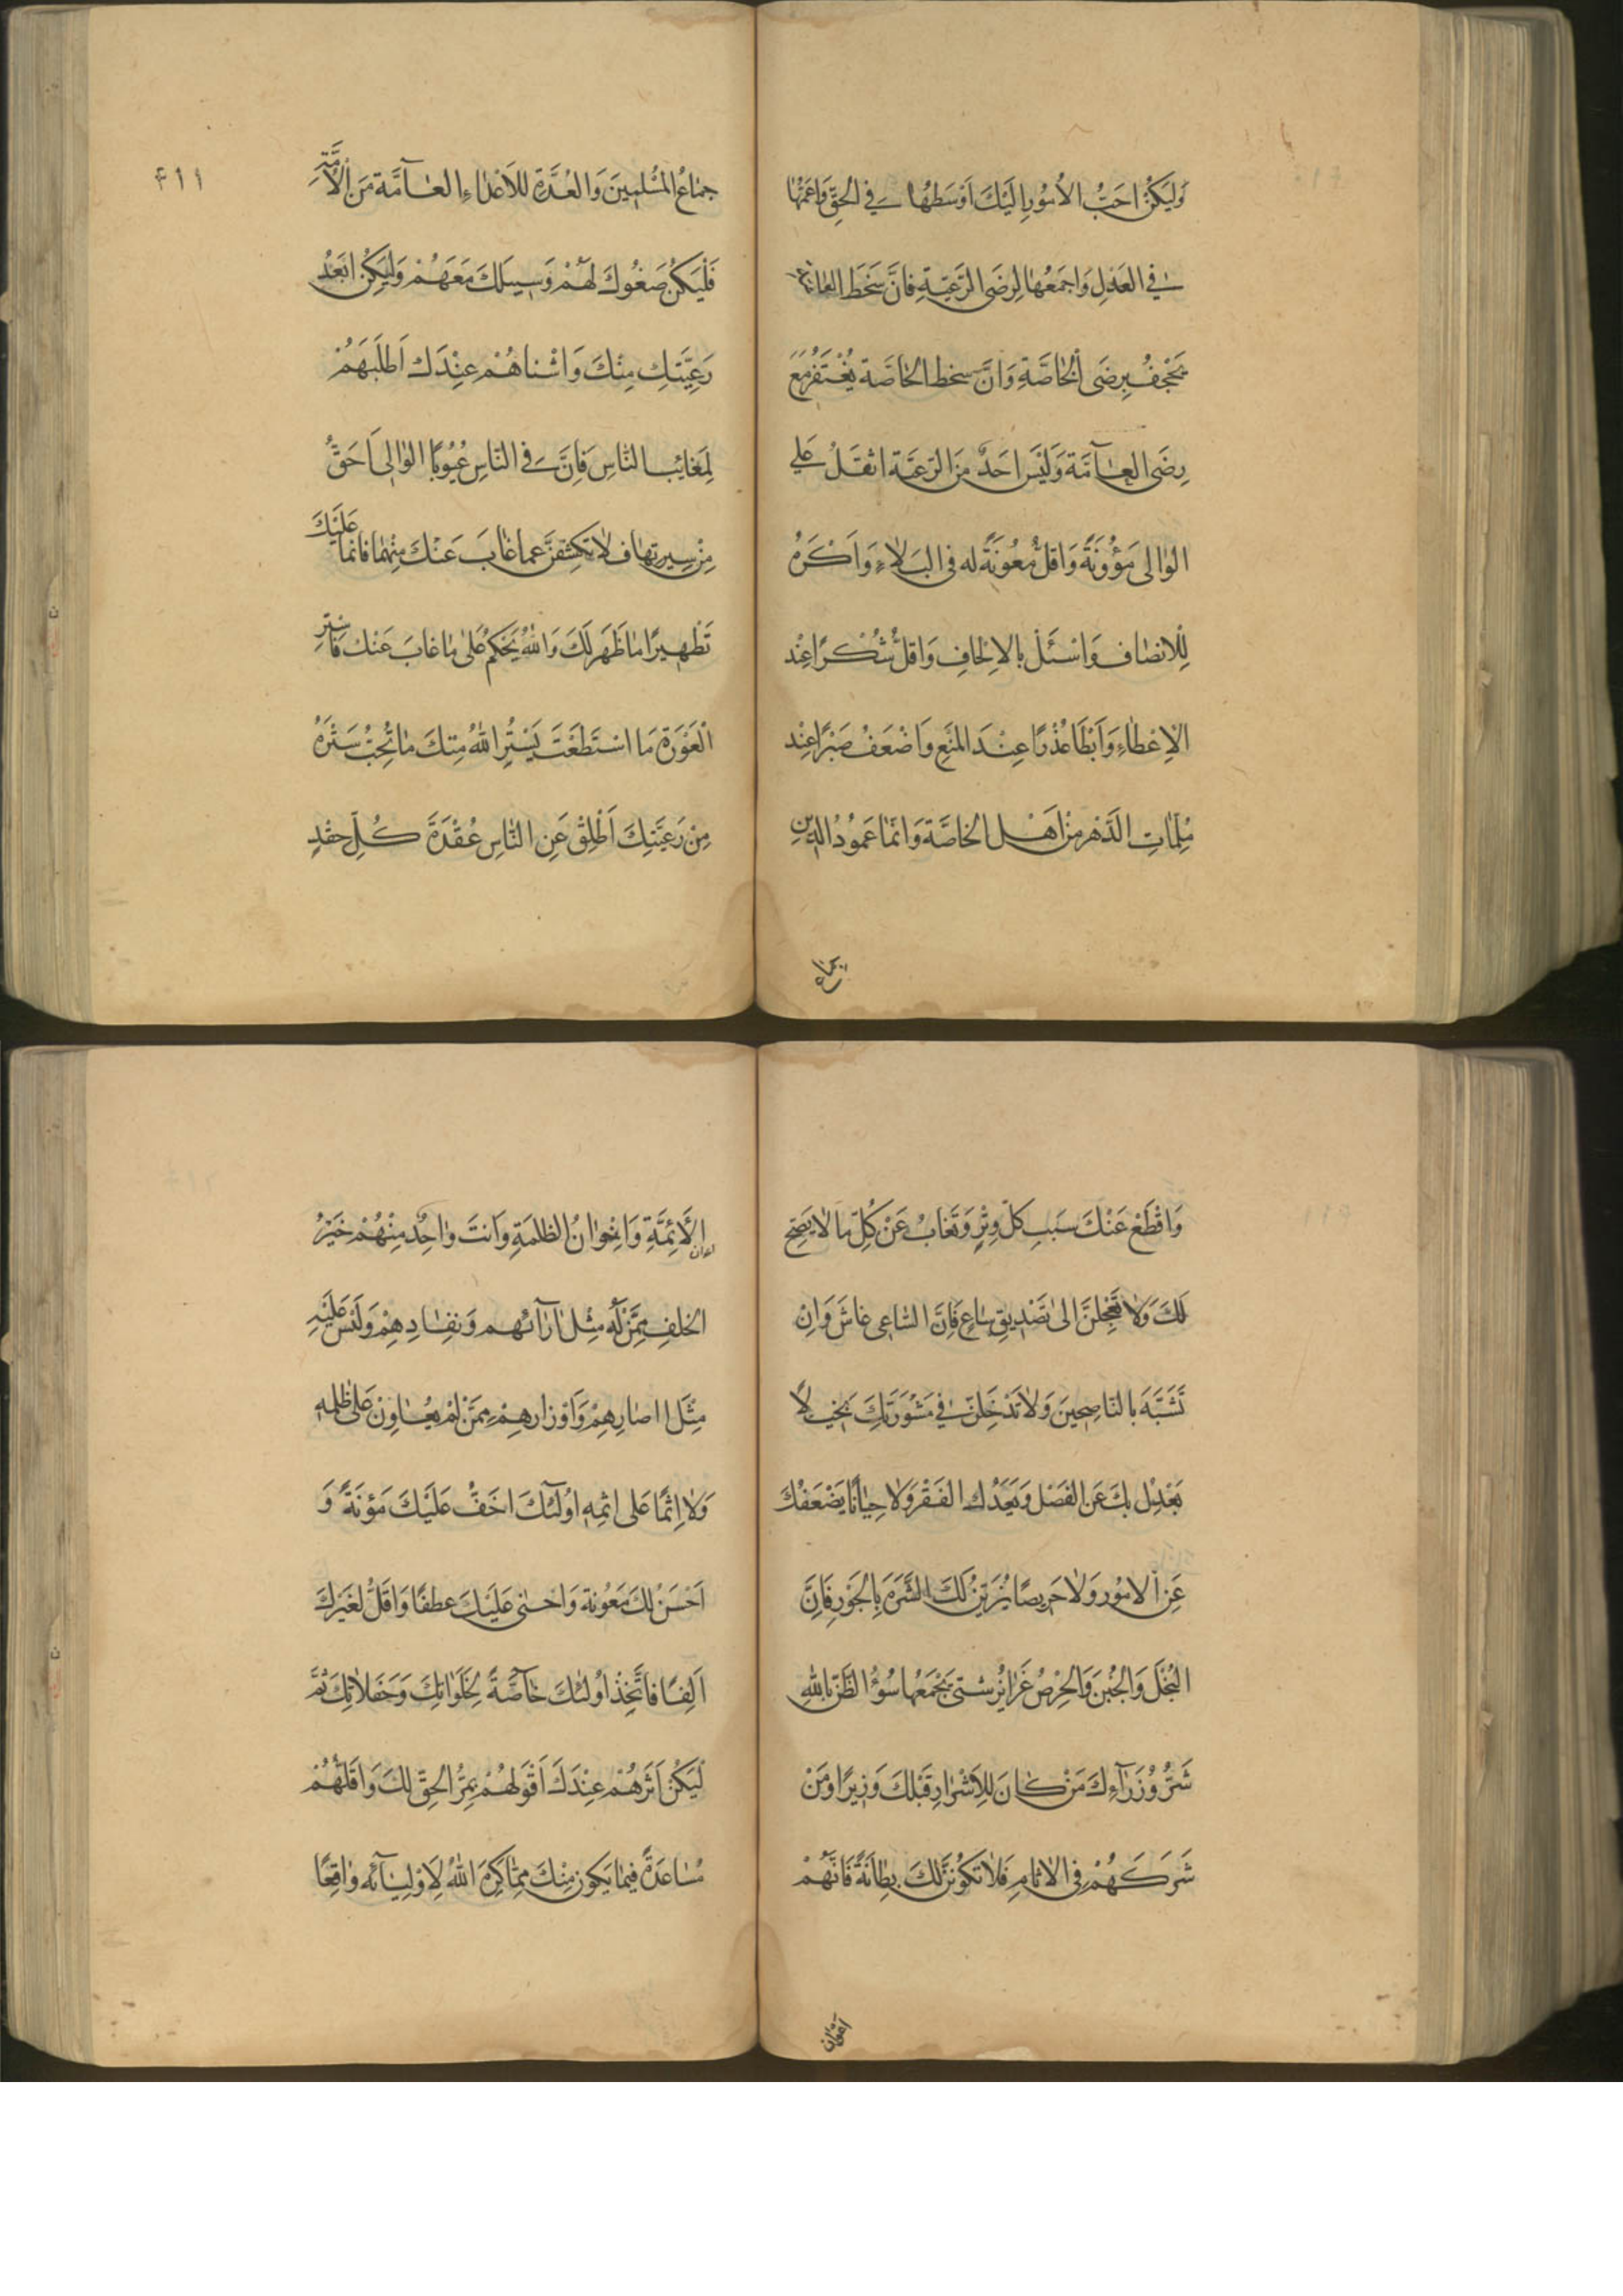 وَلْيَكُنْ اَحَبُّ الاُمُورِ اِلَيْكَ اَوْسَطُهٰا فِي الْحَقِّ وَاَعَمُّهٰا
فِي العَدْلِ وَاَجْمَعُهٰا لِرِضَى الرَّعِيَّةِ فَاِنَّ سَخَطَ العٰامَّةِ
يُجْحِفُ بِرِضَى الْخٰاصَّةِ وَاِنَّ سخط الخٰاصَّة يُغْتَفَرُ مَعَ
رِضَى العٰامَّة وَلَيْسَ اَحَدٌ مِنَ الرَّعِيَّة اثقَلُ عَلَي
الوٰالى مَؤُونَةً وَاَقَلُّ مَعُونَةً له فى البَلاٰءِ وَاَكْرَهُ
لِلْاِنصٰاف وَاَسْئَلَ بالاِلْحَافِ وَاَقَلُّ شُكْرًا عِنْد
الاِعْطٰاءِ وَاَبْطَأ عُذْرًا عِنْدَ المَنْعِ وَاَضْعَفُ صَبْرًا عِنْد
مُلِمّٰاتِ الدَّهْرِ مِنْ اَهْلِ الخاصَّة وَاِنَّمٰا عَمُودُ الدّين
جماع
٤١١
جمٰاعُ المُسْلِمِينَ وَالعُدَّةُ لِلاَعْدٰاءِ العٰامَّة مِنَ الْاُمَّةِ
فَلْيَكُنْ صَغْوُكَ لَهُمْ وَمَيلكَ مَعَهُمْ وَليَكُنْ ابعَدُ
رَعِيَّتِكَ مِنْكَ وَاشْناهُمْ عِنْدَك اَطْلَبَهُمْ
لِمَعٰائِب النّاسِ فَاِنَّ فى النّاسِ عُيُوبًا الوٰالى اَحَقُّ
مِنْ سِيرتهٰا فلاٰ تَكشِفَنَّ عمّا غابَ عَنْكَ مِنْهٰا فانما عَلَيْكَ
تَطْهِيرًا مٰا ظَهَرَ لَكَ وَاللهُ يَحْكمُ عَلىٰ مٰا غابَ عَنْك فاستر
الْعَوْرَةَ مَا اسْتَطَعْتَ يَسْتُرِ اللهُ مِنكَ مٰا تُحِبُّ سَتْرَهُ
مِنْ رَعِيَّتِكَ اَطْلِقْ عَنِ النّاسِ عُقْدَةَ كُلِّ حِقْدٍ
وَاقْطَعْ عَنْكَ سَبَبِ كلّ وِتْرٍ وَتَغَابَ عَنْ كُلِّ مٰا لاٰ يَصِحّ
لَكَ وَلاٰ تَعْجِلَنَّ الى تَصْدِيقِ سٰاعٍ فَاِنَّ السّٰاعِى غاشّ وَاِنْ
تَشَبَّهَ بالنّاصِحِينَ وَلاٰ تُدْخِلَنَّ في مَشْوَرَتِكَ بَخِيلاً
يَعْدِل بكَ عَنِ الفَضْل وَيَعِدُك الفَقْرَ وَلا جَبٰانًا يَضْعَفُكَ
عَنِ الامُور وَلاٰ حَرِيصًا يُزَيِّنُ لَكَ الشَّرَهَ بِالجَوْرِ فَاِنَّ
البُخْلَ وَالجُبْنَ وَالحِرْصَ غَرٰائِزُ شتىّ يَجْمَعُهٰا سُوءُ الظّنّ بالله
شَرُّ وُزَرٰآءِكَ مَنْ كٰانَ لِلاَشْرٰارِ قَبْلَكَ وَزِيرًا وَمَنْ
شَرَكَهُمْ فى الاٰثٰامِ فَلاٰ تَكُونَنَّ لَكَ بِطٰانَةً فَاِنَّهُمْ
اعوان
اعوان الاَئِمَّةِ وَاِخْوٰانُ الظلمَةِ وَانتَ وٰاجِدٌ مِنْهُمْ خَيْرُ
الخلفِ مِمَّنْ لَهُ مِثْل اٰرٰائهم وَنفٰادِهِمْ وَلَيْسَ عَلَيْهِ
مِثْلَ اٰصٰارِهِمْ وَاَوْزارِهِمْ مِمَّنْ لَمْ يُعٰاوِنْ عَلىٰ ظلمه
وَلاٰ اِثمًا عَلى اثمِهِ اوُلٰئكَ اخَفُّ عَلَيْكَ مَؤنَةً وَ
اَحْسَنُ لَكَ مَعُونة وَاحْنى عَلَيكَ عطفًا وَاَقَلُّ لغَيْركَ
اَلِفًا فاتَّخِذْ اوُلٰئكَ خٰاصَّةً لِخَلَوٰاتِكَ وَحَفَلاٰتِكَ ثمَّ
لْيَكُنْ اَثَرهُمْ عِنْدَكَ اَقْوَلهُمْ بِمُرِّ الحَقّ لكَ وَاَقَلَّهُمْ
مُسٰاعَدَةً فيمٰا يَكون مِنْكَ مِمّٰا كَرِهَ اللهُ لِاَوْلِيٰائه وٰاقِعًا